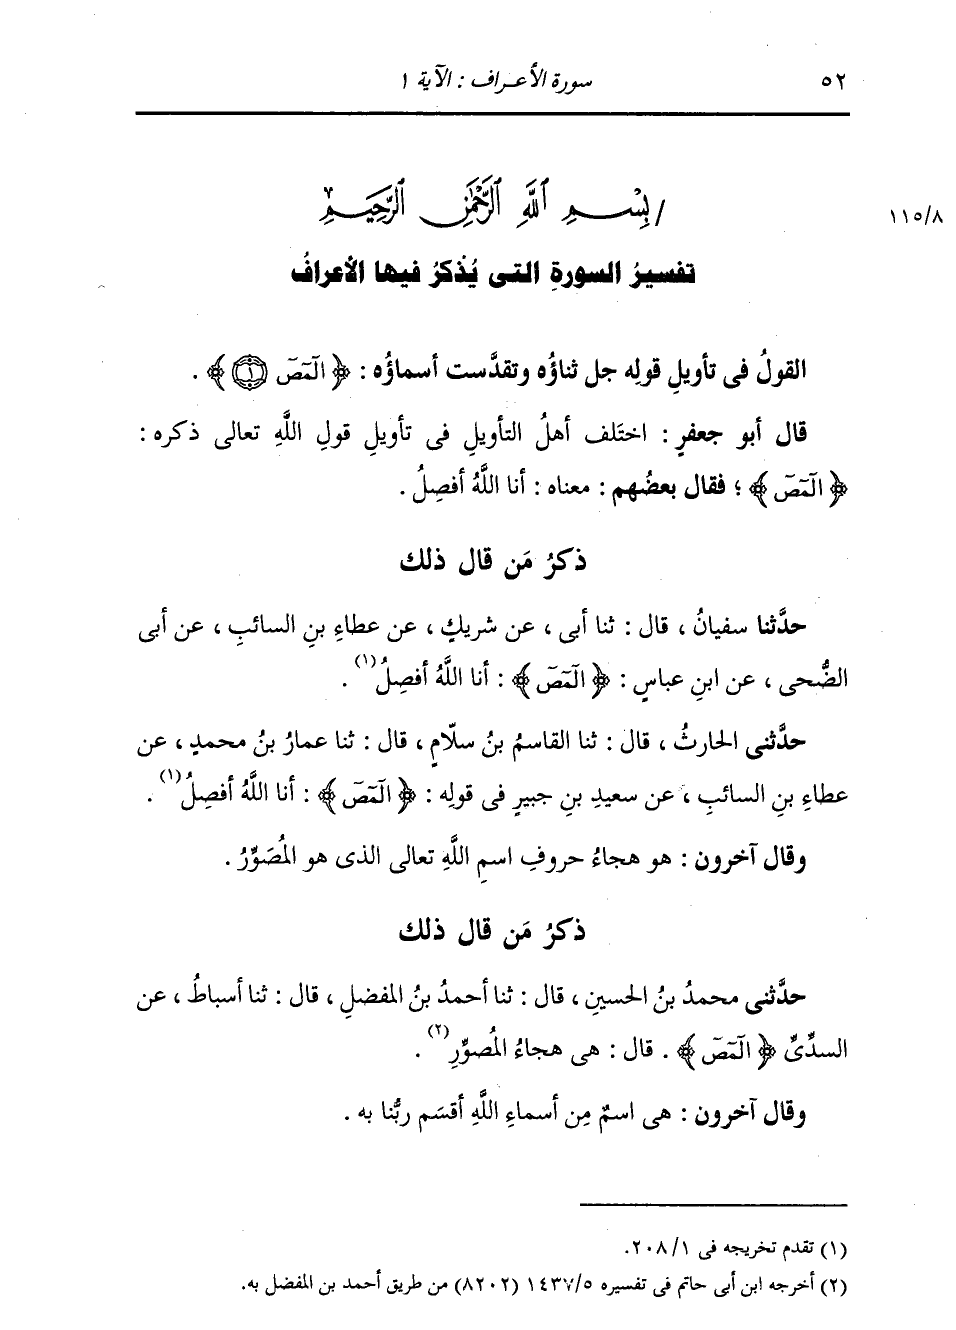 ٥٢ سورة الأعراف : الآية ١
١١٥/٨
/بِسْمِ ٱللَّهِ ٱلرَّحْمَٰنِ ٱلرَّحِيمِ
تفسيرُ السورةِ التى يُذكرُ فيها الأعرافُ
القولُ فى تأويلِ قولِه جل ثناؤُه وتقدَّست أسماؤُه : ﴿ الٓمٓصٓ ١ ﴾ .
قال أبو جعفرٍ : اختَلف أهلُ التأويلِ فى تأويلِ قولِ اللَّهِ تعالى ذكره :
﴿ الٓمٓصٓ ﴾ ؛ فقال بعضُهم : معناه : أنا اللَّهُ أفصِلُ .
ذكرُ مَن قال ذلك
حدَّثنا سفيانُ ، قال : ثنا أبى ، عن شريكٍ ، عن عطاءِ بنِ السائبِ ، عن أبى
الضُّحى ، عن ابنِ عباسٍ : ﴿ الٓمٓصٓ ﴾ : أنا اللَّهُ أفصِلُ(١) .
حدَّثنى الحارثُ ، قال : ثنا القاسمُ بنُ سلّامٍ ، قال : ثنا عمارُ بنُ محمدٍ ، عن
عطاءِ بنِ السائبِ ، عن سعيدِ بنِ جبيرٍ فى قولِه : ﴿ الٓمٓصٓ ﴾ : أنا اللَّهُ أفصِلُ(١) .
وقال آخرون : هو هجاءُ حروفِ اسمِ اللَّهِ تعالى الذى هو المُصَوِّرُ .
ذكرُ مَن قال ذلك
حدَّثنى محمدُ بنُ الحسينِ ، قال : ثنا أحمدُ بنُ المفضلِ ، قال : ثنا أسباطُ ، عن
السدِّىِّ ﴿ الٓمٓصٓ ﴾ . قال : هى هجاءُ المُصوِّرِ(٢) .
وقال آخرون : هى اسمٌ مِن أسماءِ اللَّهِ أقسَم ربُّنا به .
(١) تقدم تخريجه فى ٢٠٨/١.
(٢) أخرجه ابن أبى حاتم فى تفسيره ١٤٣٧/٥ (٨٢٠٢) من طريق أحمد بن المفضل به.